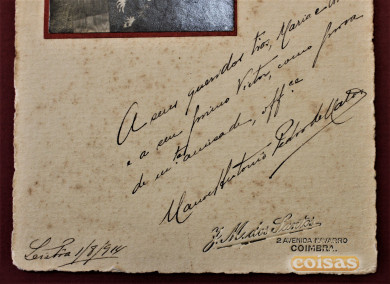 A seus queridos tios, Maria e
e a seu primo Victor, como prova
de m.ta amizade, off.ce
Manoel Antonio Pedro de Mattos
1/8/914
J. Mattos Santos
2 AVENIDA NAVARRO
COIMBRA
coisas